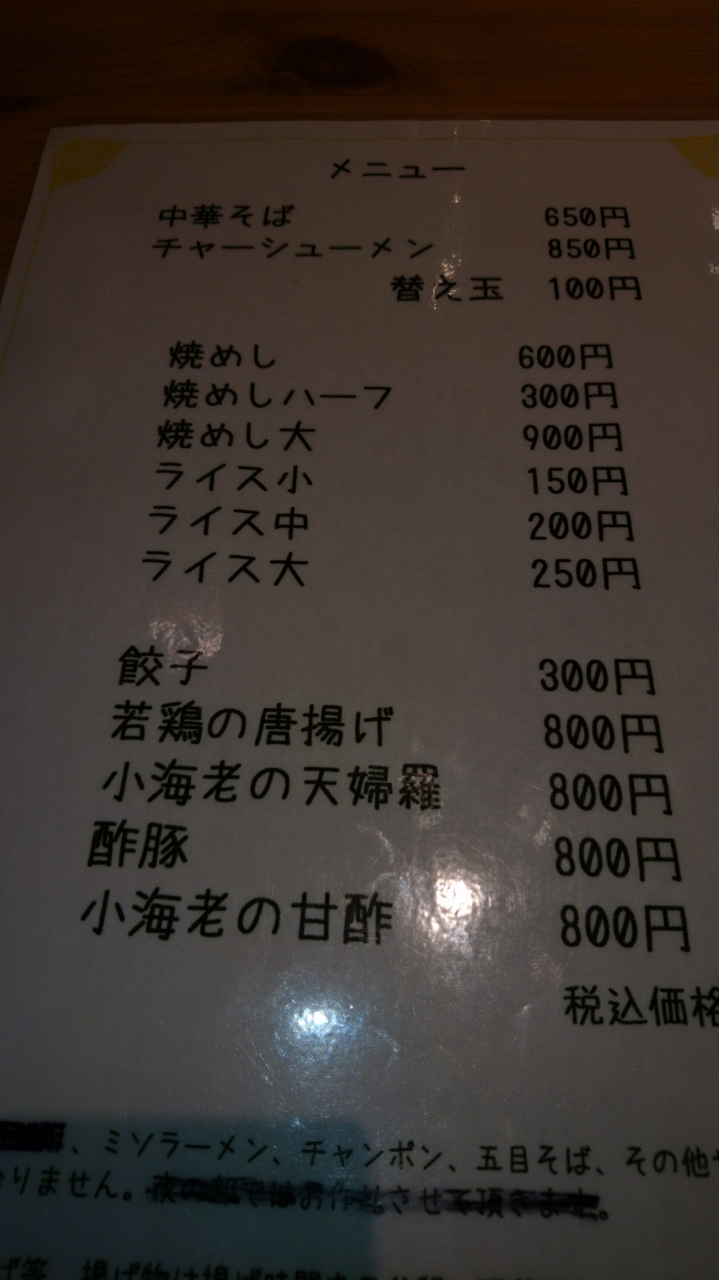 メニュー
中華そば 650円
チャーシューメン 850円
替え玉 100円
焼めし 600円
焼めしハーフ 300円
焼めし大 900円
ライス小 150円
ライス中 200円
ライス大 250円
餃子 300円
若鶏の唐揚げ 800円
小海老の天婦羅 800円
酢豚 800円
小海老の甘酢 800円
税込価格
、ミソラーメン、チャンポン、五目そば、その他
りません。夜の部ではお作りさせて頂きます。
げ等、揚げ物は揚げ時間